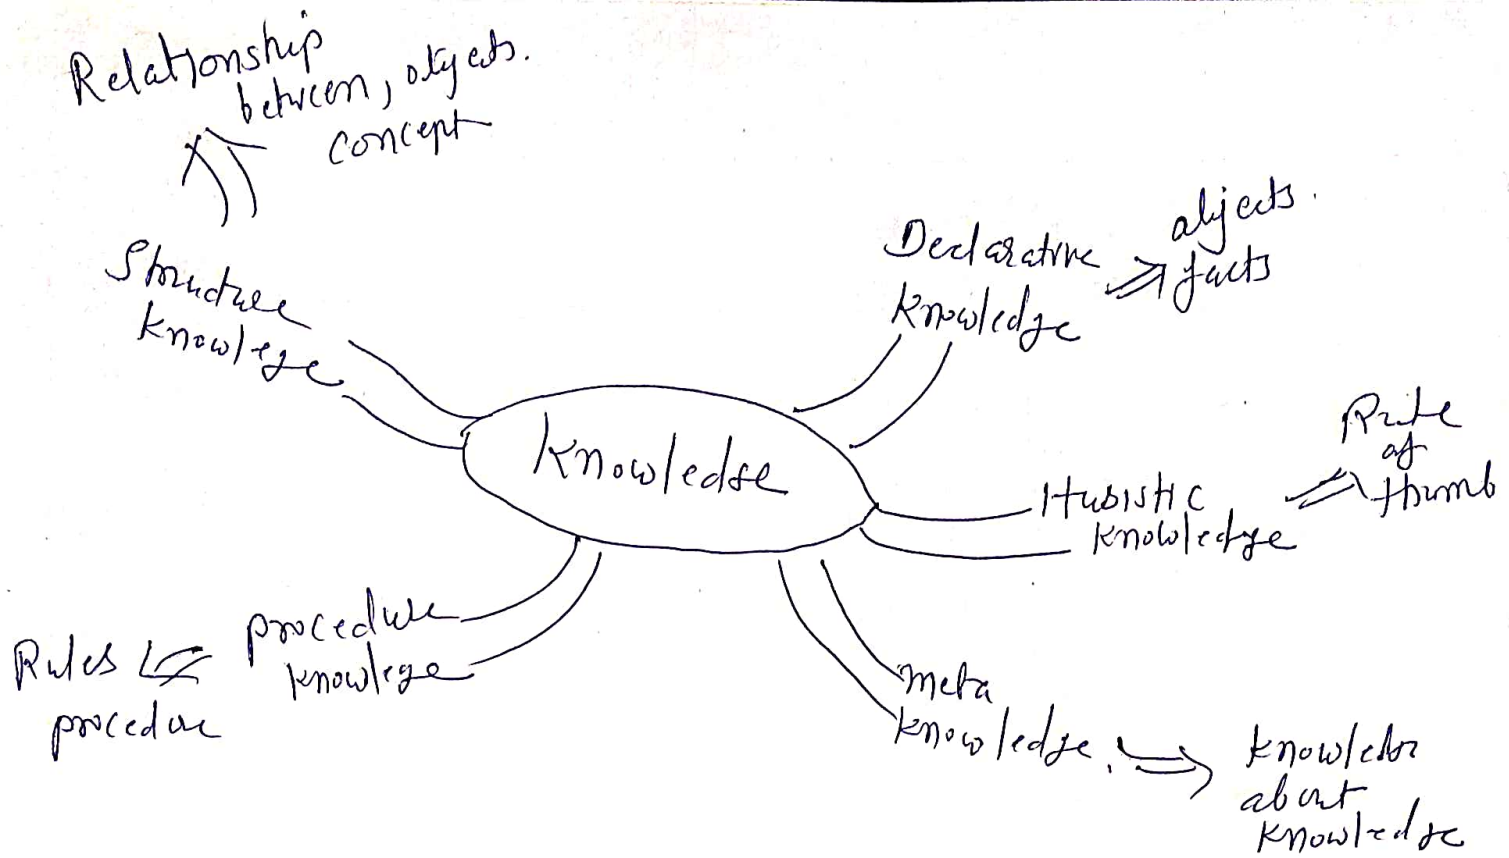 Relationship
between, objects.
concept
Structure
knowlege
Declarative
knowledge
objects.
facts
knowledge
Hubistic
knowledge
Rule
of
thumb
procedure
knowlege
Rules
procedure
meta
knowledge.
knowledge
about
knowledge